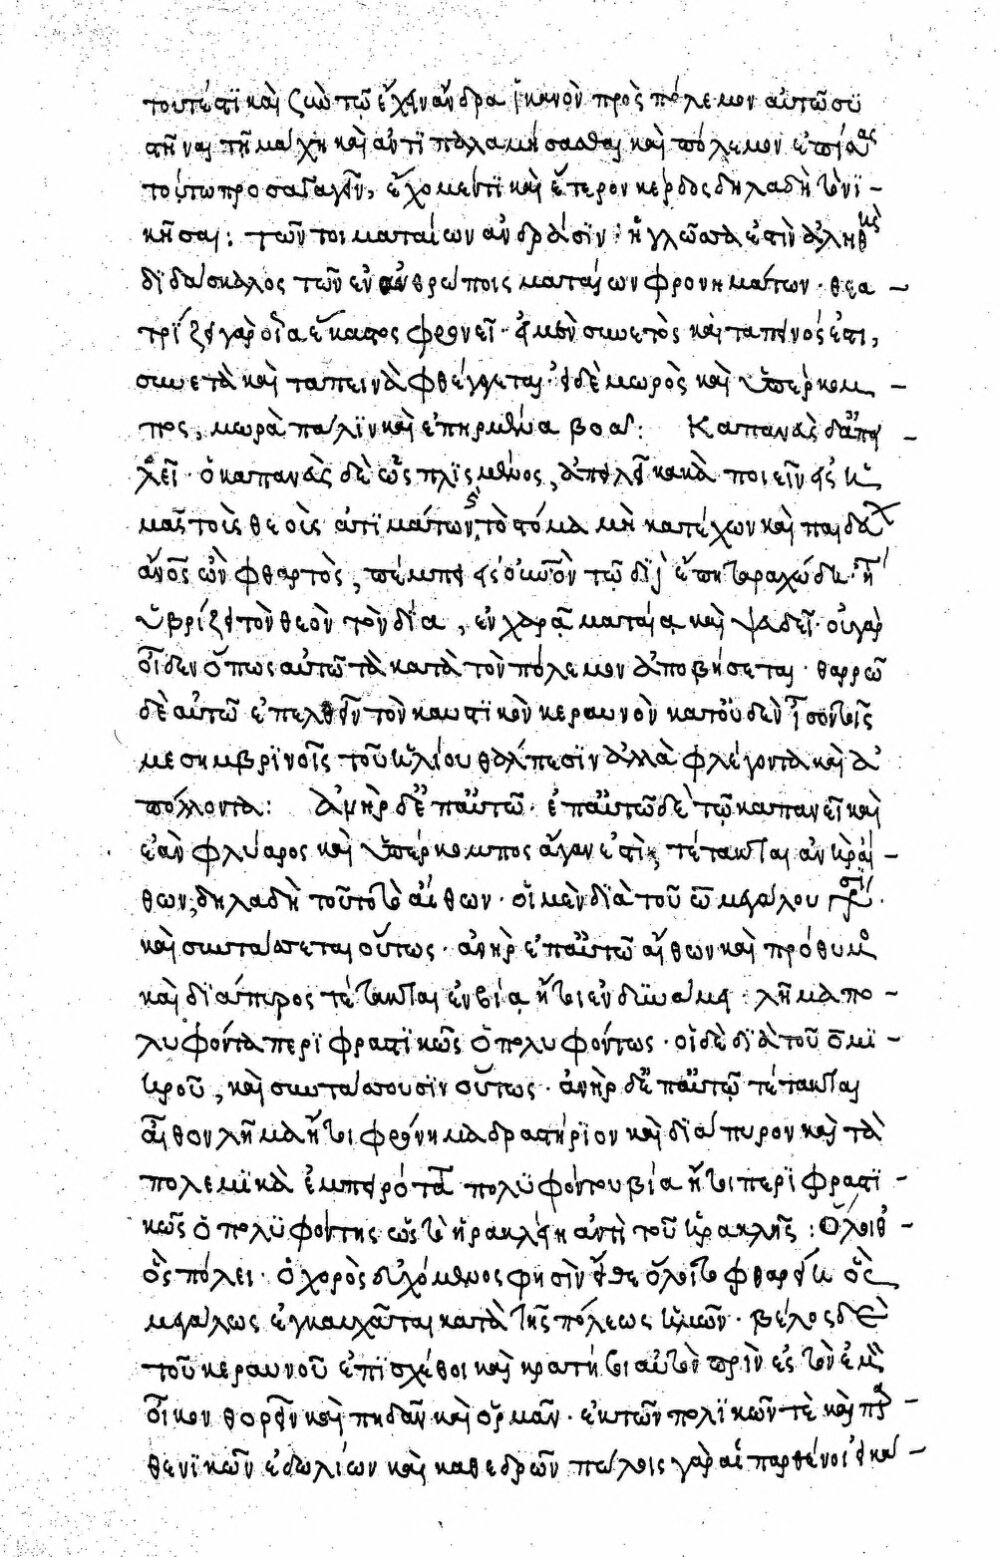 τουτέστι καὶ ζητῶ τῷ ἔχειν ἄνδρα ἱκανὸν πρὸς πόλεμον αὐτῷ συ
στῆναι τῇ μάχῃ καὶ ἀντιπολεμήσασθαι καὶ πόλεμον
τούτω προσαγαγεῖν, ἔχομέν τι καὶ ἕτερον κέρδος δηλαδὴ τὸ νϊ-
κῆσαι: τῶν τοι ματαίων ἀνδράσϊν· ἡ γλῶσσα ἐστὶν ἀληθὴς
δϊδάσκαλος τῶν ἐν ἀνθρώποις ματαίων φρονημάτων· θεα-
τρίζει γὰρ οἷα ἕκαστος φρονεῖ· εἰ μὲν συνετὸς καὶ ταπεινός ἐστι,
συνετὰ καὶ ταπεινὰ φθέγγεται· εἰ δὲ μωρὸς καὶ ὑπέρκομ-
πος, μωρὰ πάλϊν καὶ ἐπηρμένα βοᾶ: Καπανεὺς δ' ἀπει-
λεῖ· ὁ καπανεὺς δὲ ὡπλϊσμένος, ἀπειλεῖ κακὰ ποιεῖν εἰς ἡ
μᾶς τοῖς θεοῖς ἀτϊμάζων, τὸ στόμα μὴ κατέχων καὶ παιδεύων
ἄνος ὢν φθαρτὸς, πέμπει εἰς οὐνὸν τῷ διὶ ἔπη ταραχώδη· ἢ
ὑβρίζει τὸν θεὸν τὸν δία, ἐν χαρᾷ ματαίᾳ καὶ ψευδεῖ· οὐ γὰρ
οἶδεν ὅπως αὐτῷ τὰ κατὰ τὸν πόλεμον ἀποβήσεται· θαρρῶ
δὲ αὐτῷ ἐπελθεῖν τὸν καυστϊκὸν κεραυνὸν κατ' οὐδὲν ἶσον τοῖς
μεσημβρϊνοῖς τοῦ ἡλίου θάλπεσϊν ἀλλὰ φλέγοντα καὶ ἀ
πολλοντα: Ἀνὴρ δ' ἐπ' αὐτῷ· ἐπ' αὐτῷ δὲ τῷ καπανεῖ καὶ
ἐὰν φλύαρος καὶ ὑπέρκομπος ἄγαν ἐστὶ, τέτακται ἀνὴρ αἴ-
θων, δηλαδὴ τοῦτο τὸ αἴθων· οἱ μὲν δϊὰ τοῦ ω μεγάλου γράφουσϊ·
καὶ συντάσσεται οὕτως· ἀνὴρ ἐπ' αὐτῷ αἴθων καὶ πρόθυμος
καὶ δϊάπυρος τέτακται ἐν βίᾳ ἤτοι ἐν δϋνάμει· λῆμα πο-
λυφόντα περϊφραστϊκῶς ὁ πολυφόντως· οἱ δὲ δϊὰ τοῦ ο μϊ-
κροῦ, καὶ συντάσσουσϊν οὕτως· ἀνὴρ δ' ἐπ' αὐτῷ τέτακται
αἶθον λῆμα ἤτοι φρόνημα δραστήριον καὶ δϊάπυρον καὶ τὰ
πολεμϊκὰ ἐμπειρότατα πολϋφόντου βία ἤτοι περϊφραστϊ-
κῶς ὁ πολϋφόντης ὡς τὸ ἡρακλείη ἀντὶ τοῦ ἡρακλῆς: Ὄλοιθ'-
ὃς πόλει· ὁ χορὸς εὐχόμενος φησὶν εἴθε ὄλοιτο φθαρείη ὃς
μεγάλως ἐγκαυχᾶται κατὰ τῆς πόλεως ἡμῶν· βέλος δὲ
τοῦ κεραυνοῦ ἐπϊσχέθοι καὶ κρατήτοι αὐτὸν πρὶν εἰς τὸν ἐμὸν
οἶκον θορεῖν καὶ πηδᾶν καὶ ὁρμᾶν· ἐκ τῶν πολϊκῶν τὲ καὶ παρ-
θενϊκῶν ἐδωλίων καὶ καθεδρῶν πώλοις γὰρ αἱ παρθένοι εἰκα-